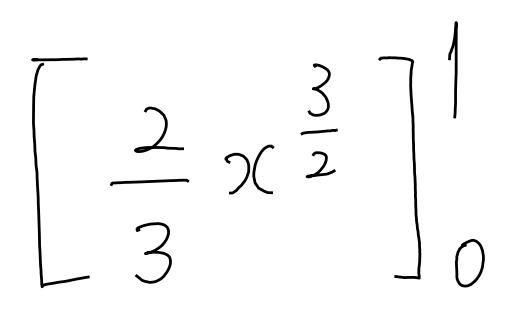 $\left[ \frac{2}{3} x^{\frac{3}{2}} \right]_0^1$